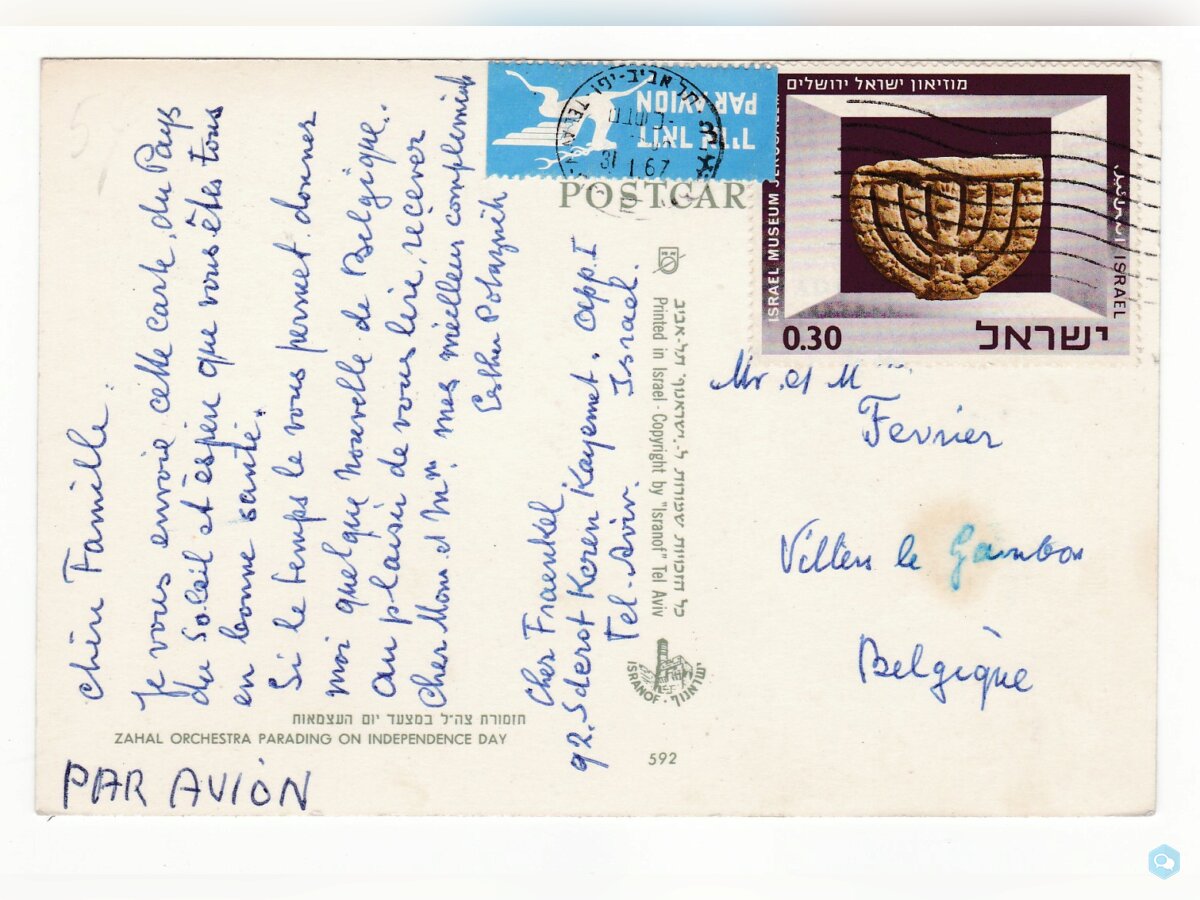 Chère Famille.
Je vous envoie cette carte, du Pays
du Soleil et éspère que vous êts tous
en bonne santé.
Si le temps le vous permet. donner
moi quelque nouvelle de Belgique.
Au plaisir de vous lire, récever
Cher Mons. et Mme. mes meilleur compliments
Esther
Chez Fraenkel
92. Sderot Keren Kayemet. app. I
Tel-Aviv. Israel.
תזמורת צה"ל במצעד יום העצמאות
ZAHAL ORCHESTRA PARADING ON INDEPENDENCE DAY
PAR AVION
POSTCAR
דואר אויר
PAR AVION
תל אביב-יפו
31 1 67
כל הזכויות שמורות ל"ישראנוף" תל-אביב
Printed in Israel · Copyright by "Isranof" Tel Aviv
ISRANOF · ישראנוף
592
מוזיאון ישראל ירושלים
ISRAEL MUSEUM JERUSALEM
اسرائيل ISRAEL
0.30 ישראל
Mr. et Mme.
Fevrier
Villers le Gambon
Belgique